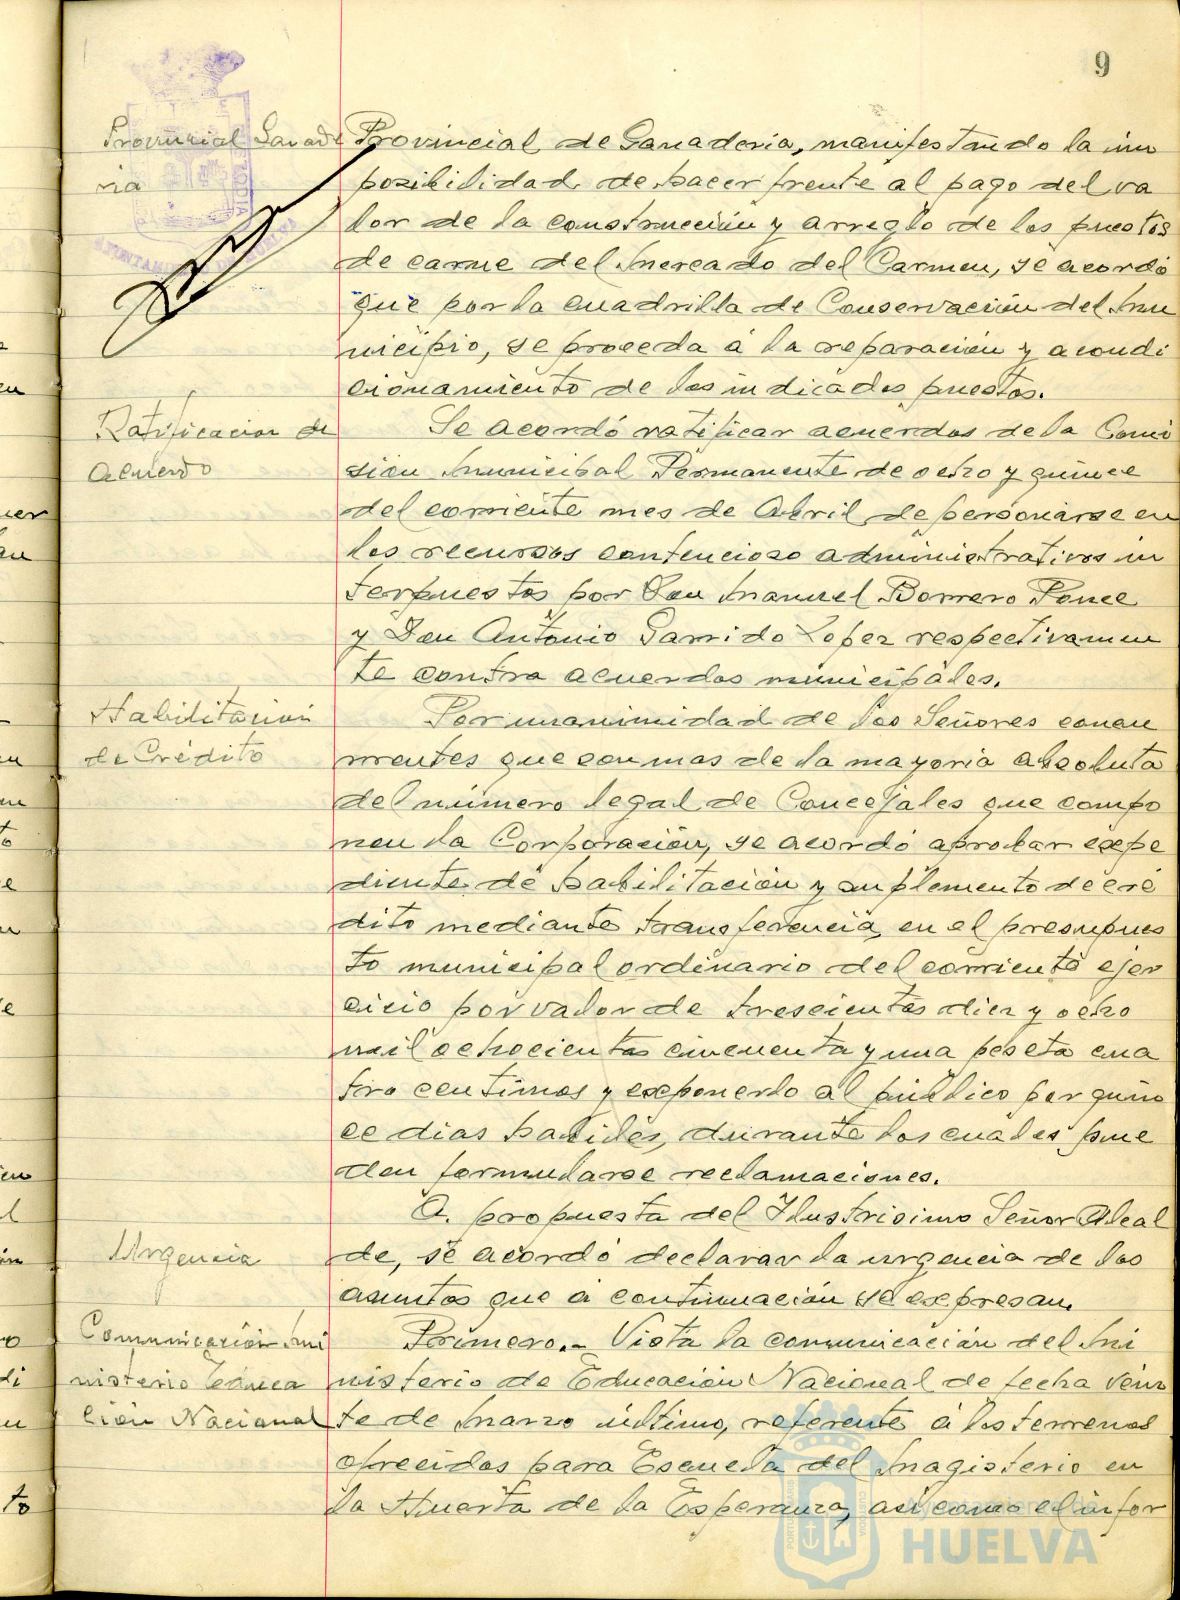 9
Provincial Ganade
ria
Provincial de Ganaderia, manifestando la im
posibilidad de hacer frente al pago del va
lor de la construcción y arreglo de los puestos
de carne del Mercado del Carmen, se acordó
que por la cuadrilla de Conservación del Mu
nicipio, se proceda á la reparación y acondi
cionamiento de los indicados puestos.
Ratificacion de
acuerdo
Se acordó ratificar acuerdos de la Comi
sión Municipal Permanente de ocho y quince
del corriente mes de Abril de personarse en
los recursos contencioso administrativos in
terpuestos por Don Manuel Borrero Ponce
y Don Antonio Garrido Lopez respectivamen
te contra acuerdos municipales.
Habilitacion
de Crédito
Por unanimidad de los Señores concu
rrentes que son mas de la mayoria absoluta
del número legal de Concejales que compo
nen la Corporación, se acordó aprobar expe
diente de habilitación y suplemento de cré
dito mediante transferencia, en el presupues
to municipal ordinario del corriente ejer
cicio por valor de trescientas diez y ocho
mil ochocientas cincuenta y una peseta cua
tro centimos y exponerlo al público por quin
ce dias habiles, durante los cuales pue
den formularse reclamaciones.
Urgencia
A propuesta del Ilustrisimo Señor Alcal
de, se acordó declarar la urgencia de los
asuntos que á continuación se expresan.
Comunicación Mi
nisterio Educa
ción Nacional
Primero.- Vista la comunicación del Mi
nisterio de Educación Nacional de fecha vein
te de Marzo último, referente á los terrenos
ofrecidos para Escuela del Magisterio en
la Huerta de la Esperanza, asi como el infor
Ayuntamiento de
HUELVA